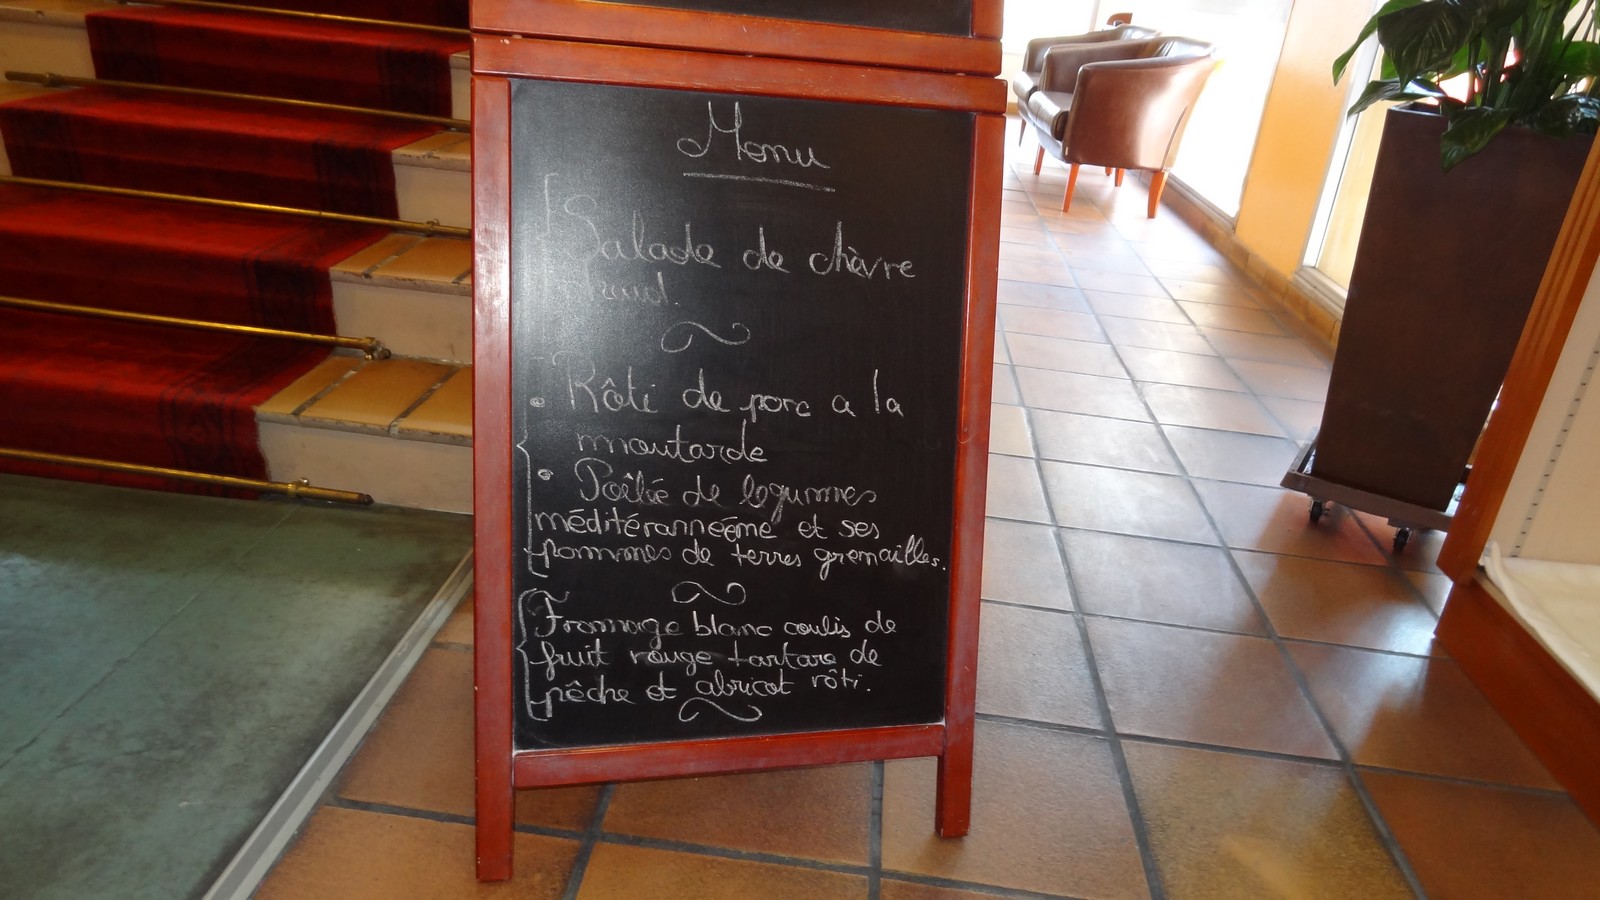 Menu
Salade de chèvre
Rôti de porc a la
moutarde
Poêlée de legumes
méditéranneéme et ses
pommes de terres grenailles.
Fromage blanc coulis de
fruit rouge tartare de
pêche et abricot rôti.